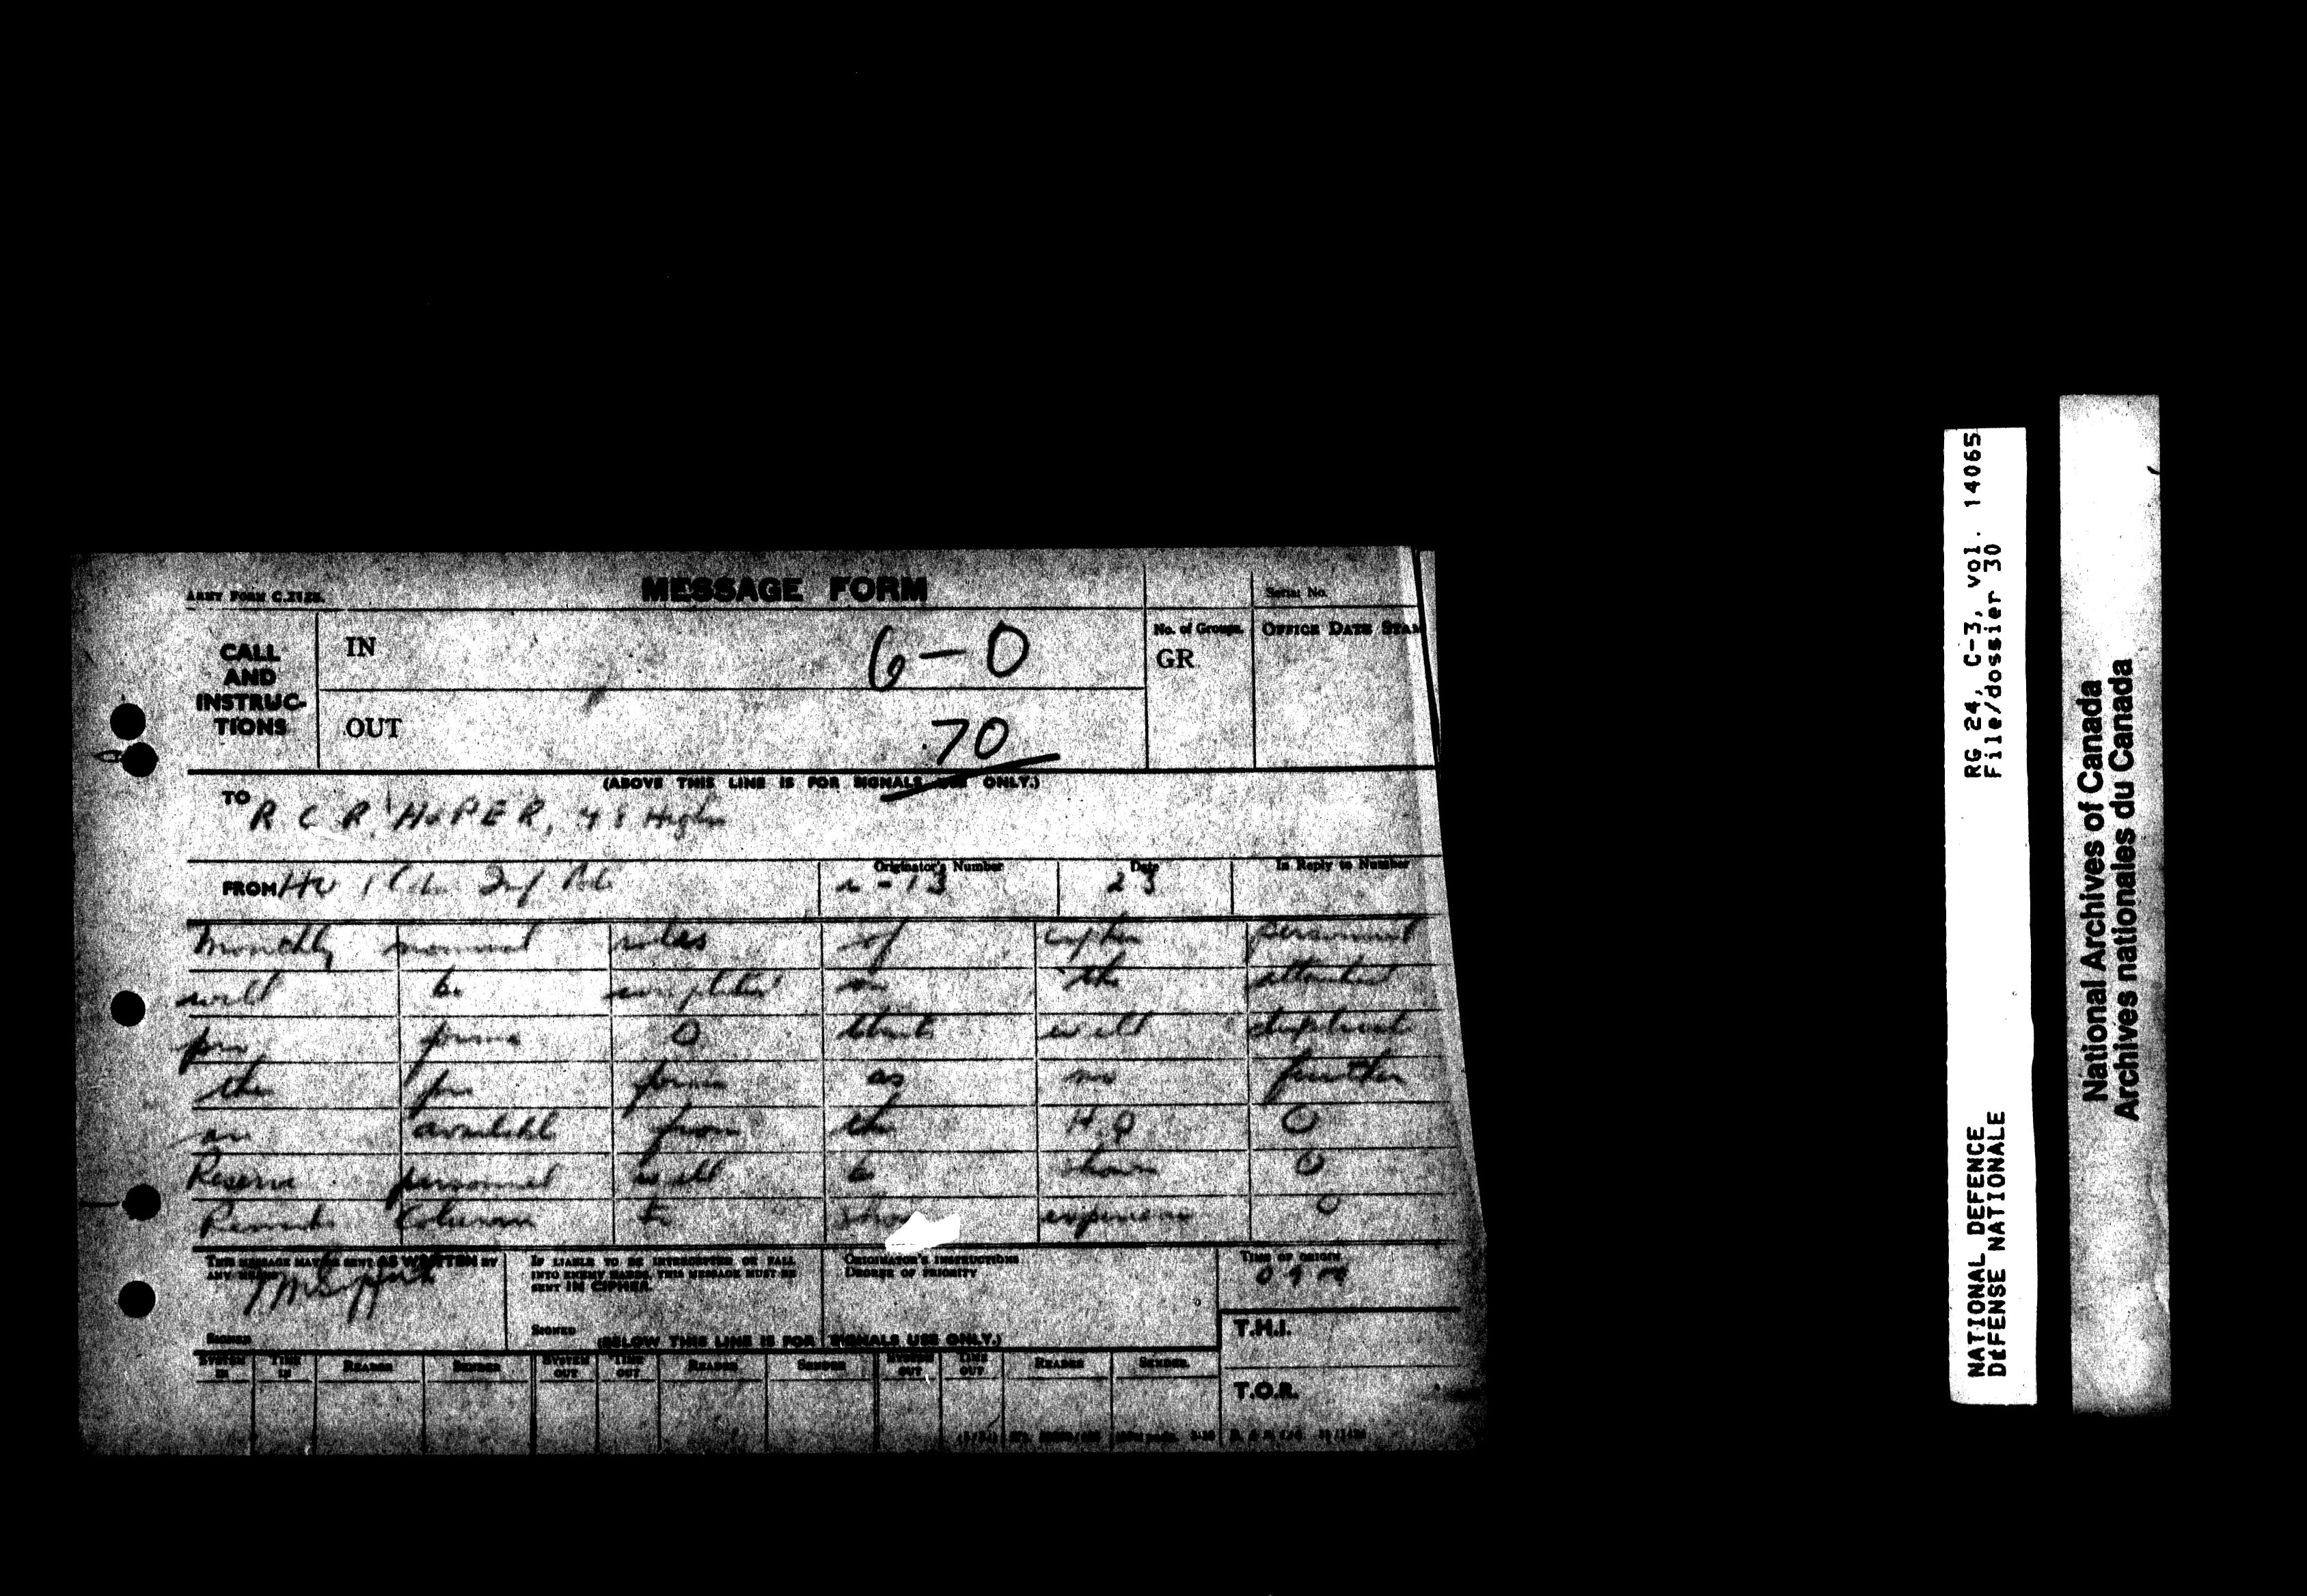 ARMY FORM C.2128.
MESSAGE FORM
Serial No.
CALL AND INSTRUCTIONS
IN
6-0
No. of Groups.
GR
OFFICE DATE STA
OUT
70
(ABOVE THIS LINE IS FOR SIGNALS USE ONLY.)
TO R C R, H&PER, 48 Highrs
FROM HQ 1 Cdn Inf Bde
Originator's Number
Date 23
In Reply to Number
Monthly nominal roles of cipher personnel
will be completed on the attached
pro forma O Units will duplicate
the pro forma as no further
are available from this H.Q O
Reserve personnel will be shown O
Remarks Column to show experience O
THIS MESSAGE MAY BE SENT AS WRITTEN BY ANY MEANS
SIGNED
IF LIABLE TO BE INTERCEPTED OR FALL INTO ENEMY HANDS, THIS MESSAGE MUST BE SENT IN CIPHER.
SIGNED
ORIGINATOR'S INSTRUCTIONS
DEGREE OF PRIORITY
TIME OF ORIGIN
T.H.I.
T.O.R.
(BELOW THIS LINE IS FOR SIGNALS USE ONLY.)
SYSTEM IN TIME IN READER SENDER SYSTEM OUT TIME OUT READER SENDER SYSTEM OUT TIME OUT READER SENDER
RG 24, C-3, vol. 14065
File/dossier 30
NATIONAL DEFENCE
DEFENSE NATIONALE
National Archives of Canada
Archives nationales du Canada